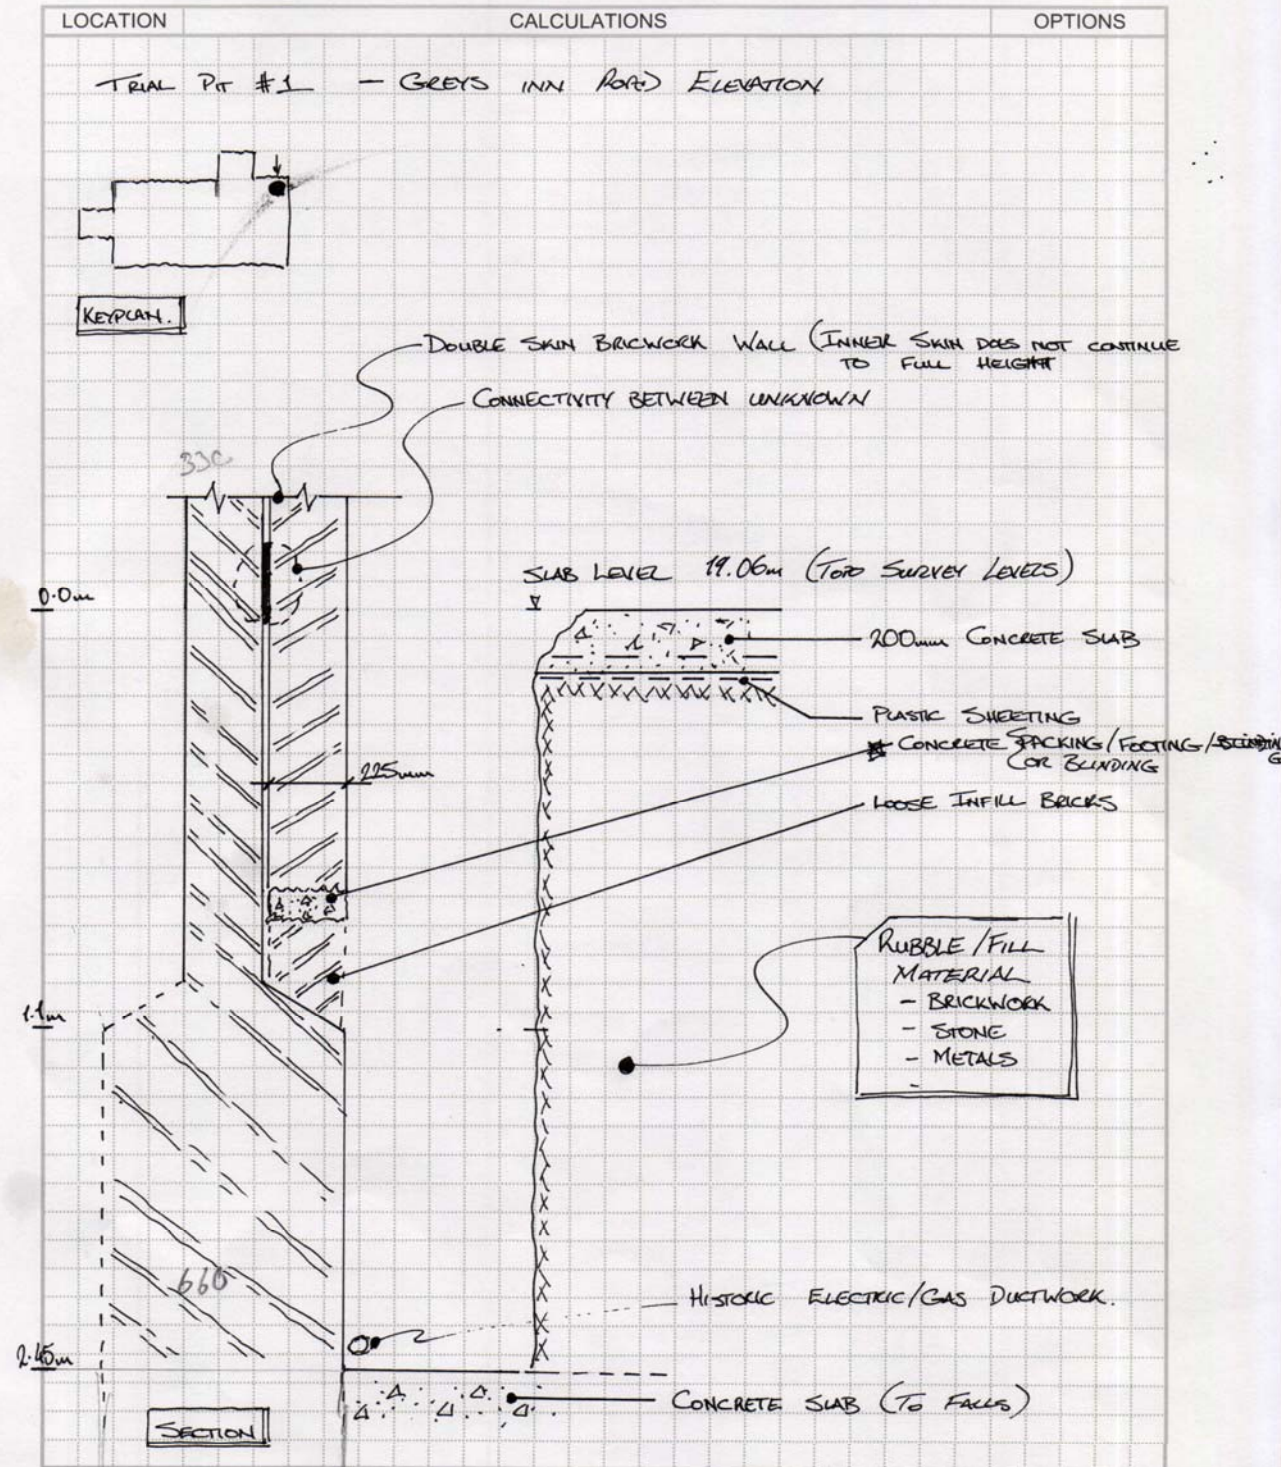 LOCATION CALCULATIONS OPTIONS
TRIAL PIT #1 - GREYS INN ROAD ELEVATION
KEYPLAN.
DOUBLE SKIN BRICWORK WALL (INNER SKIN DOES NOT CONTINUE
TO FULL HEIGHT
CONNECTIVITY BETWEEN UNKNOWN
330
SLAB LEVEL 19.06m (TOPO SURVEY LEVELS)
0.0m
200mm CONCRETE SLAB
PLASTIC SHEETING
CONCRETE PACKING/FOOTING/
(OR BLINDING
225mm
LOOSE INFILL BRICKS
RUBBLE/FILL
MATERIAL
- BRICKWORK
- STONE
- METALS
-
1.1m
660
HISTORIC ELECTRIC/GAS DUCTWORK.
2.45m
CONCRETE SLAB (TO FALLS)
SECTION